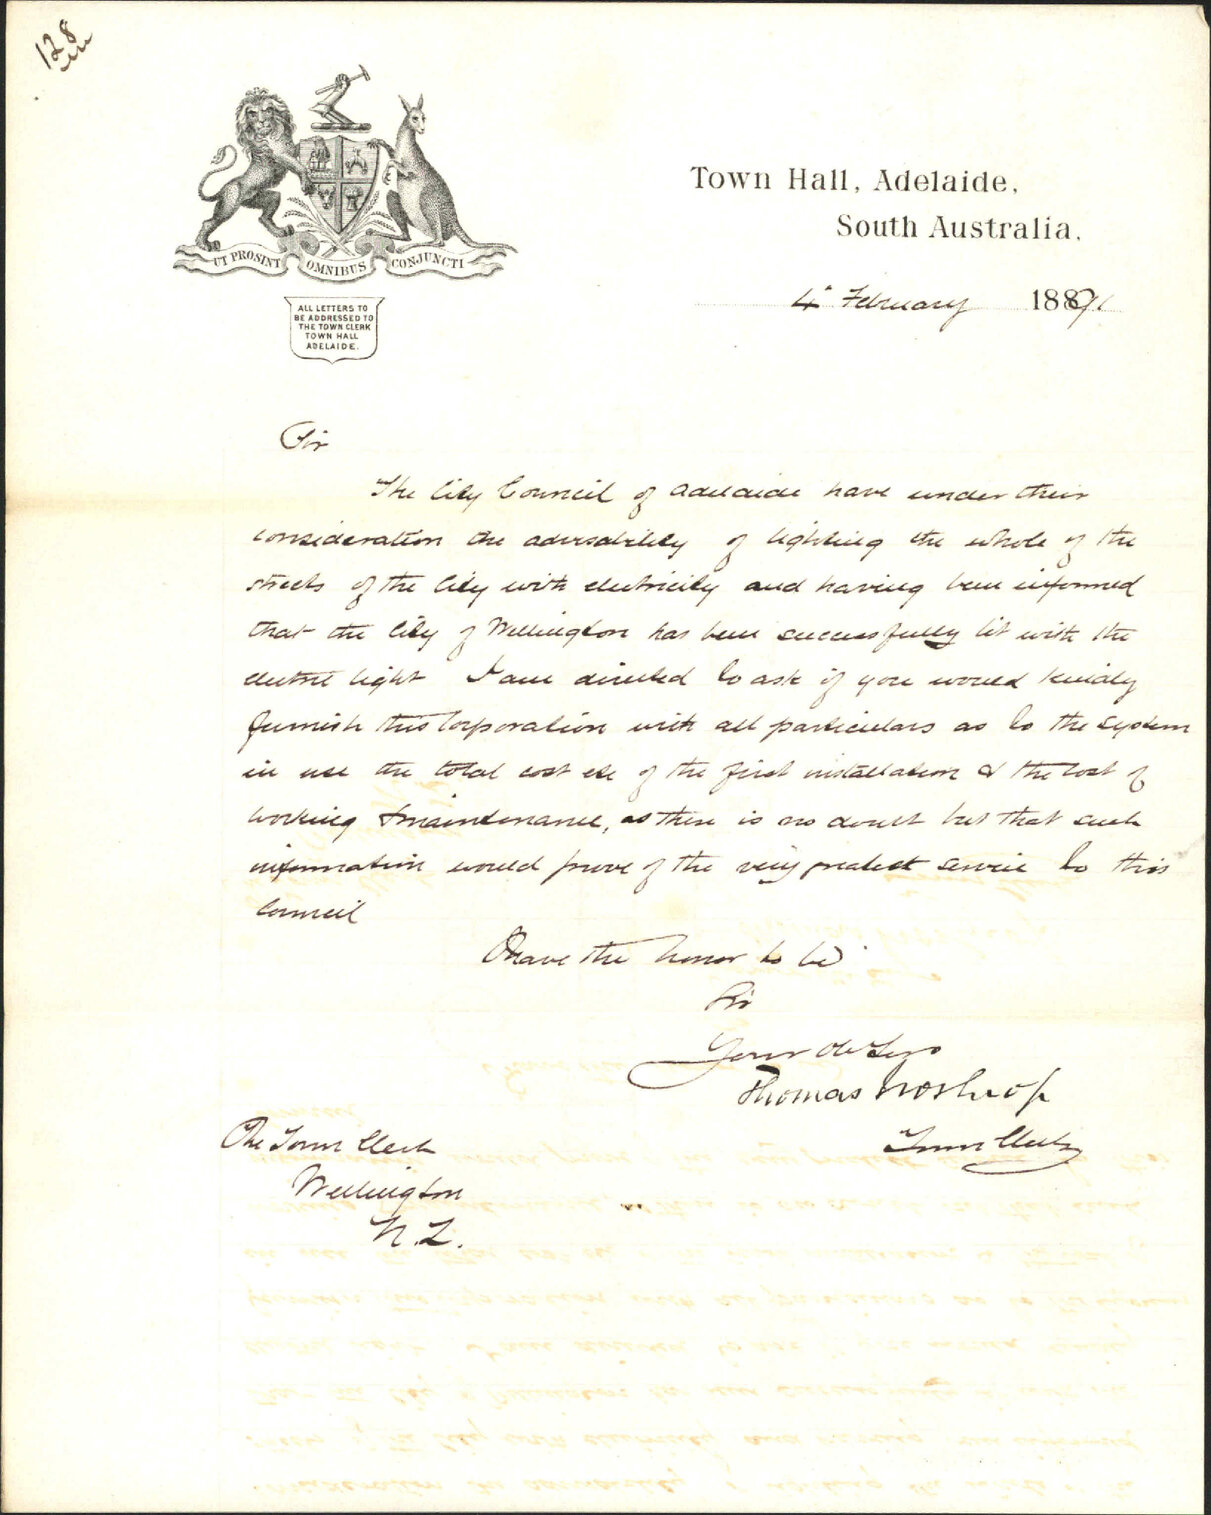 128
UT PROSINT OMNIBUS CONJUNCTI
ALL LETTERS TO
BE ADDRESSED TO
THE TOWN CLERK
TOWN HALL
ADELAIDE.
Town Hall, Adelaide,
South Australia,
4 February 1891
Sir
The City Council of Adelaide have under their
consideration the advisability of lighting the whole of the
streets of the City with electricity and having been informed
that the City of Wellington has been successfully lit with the
electric light I am directed to ask if you would kindly
furnish this Corporation with all particulars as to the system
in use the total cost etc of the first installation & the cost of
working & maintenance, as there is no doubt but that such
information would prove of the very greatest service to this
Council
I have the honor to be
Sir
Your Ob Serv
Thomas Worsnop
Town Clerk
The Town Clerk
Wellington
N.Z.